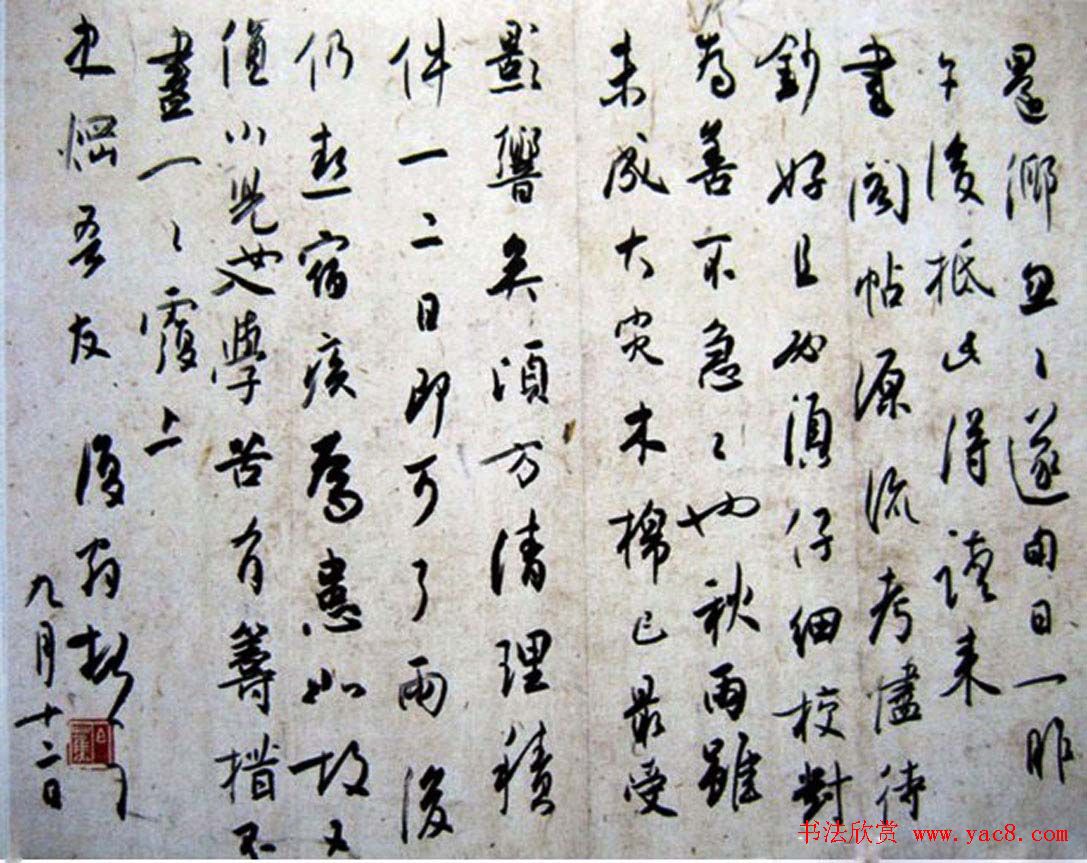 還鄉忽〻遂旬日一昨
午後抵此得讀來
書閣帖源流考儘待
鈔好且必須仔細校對
為善不急〻也秋雨雖
未成大災木棉已最受
影響矣須方清理積
件一二日即可了雨後
仍患宿疾為患如故又
值小兒女學苦有籌措不
盡一〻覆上
史樹吾友
九月十二日
书法欣赏 www.yac8.com